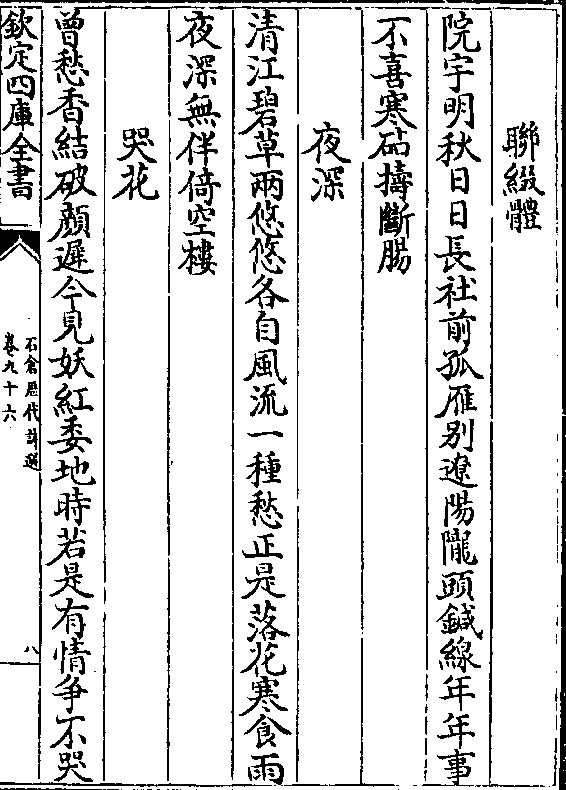 聯綴體
院宇明秋日日長社前孤雁别遼陽隴頭鍼線年年事
不喜寒砧擣斷腸
夜深
清江碧草兩悠悠各自風流一種愁正是落花寒食雨
夜深無伴倚空樓
哭花
曾愁香結破顔遲今見妖紅委地時若是有情爭不哭
欽定四庫全書
石倉歴代詩選
卷九十六
八